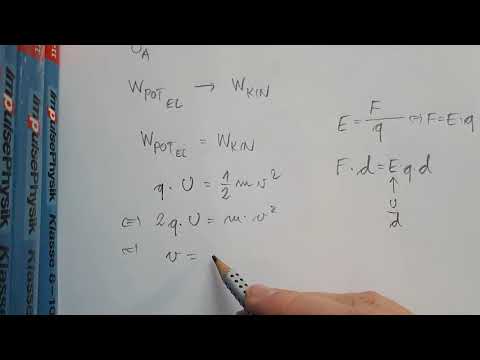 U_A
W_POT EL → W_KIN
W_POT EL = W_KIN
q · U = 1/2 m v²
⇔ 2q · U = m · v²
⇔ v =
E = F/q ⇔ F = E · q
F · d = E · q · d
↑
U
d
ImpulsePhysik Klasse 8-10
ImpulsePhysik Klasse
ImpulsePhysik Klasse